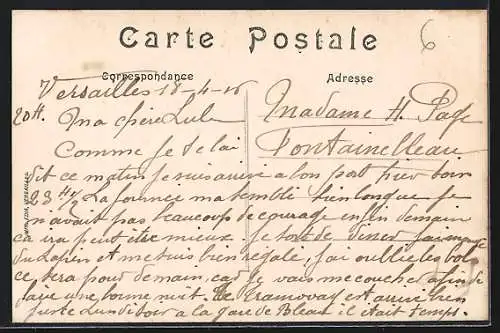 Carte Postale
6
Correspondance
Adresse
Versailles 18-4-16
20H.
Ma chère Lulu
Madame H. Page
Fontainebleau
Comme je te l'ai
dit ce matin je suis arrivé a bon port hier soir
23 H ½ La journée m'a semblé bien longue je
n'avait pas beaucoup de courage enfin demain
ca ira peut être mieux. Je sort de diner j'ai mangé
du lapin et me suis bien régalé, j'ai oublié les
ce sera pour demain, car je vais me coucher afin de
faire une bonne nuit. Le Tramway est arrivé bien
juste Lundi soir a la gare de Bleau il était temps.